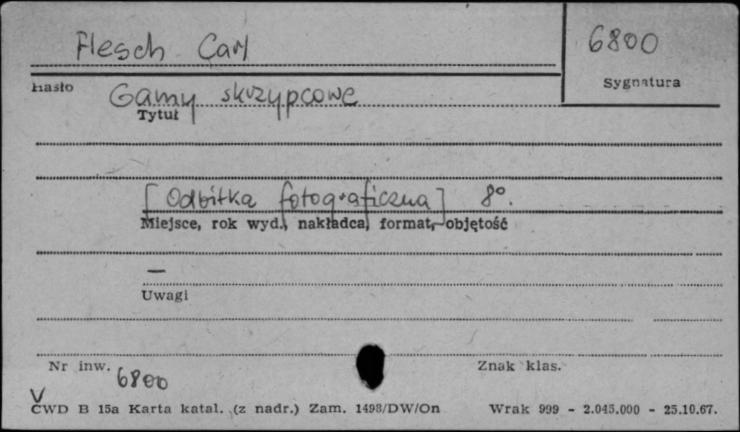 Flesch Carl
6800
Sygnatura
Hasło
Gamy skrzypcowe
Tytuł
[Odbitka fotograficzna] 8°.
Miejsce, rok wyd., nakładca, format, objętość
—
Uwagi
Nr inw. 6800
Znak klas.
V
CWD B 15a Karta katal. (z nadr.) Zam. 1498/DW/On Wrak 999 - 2.045.000 - 25.10.67.